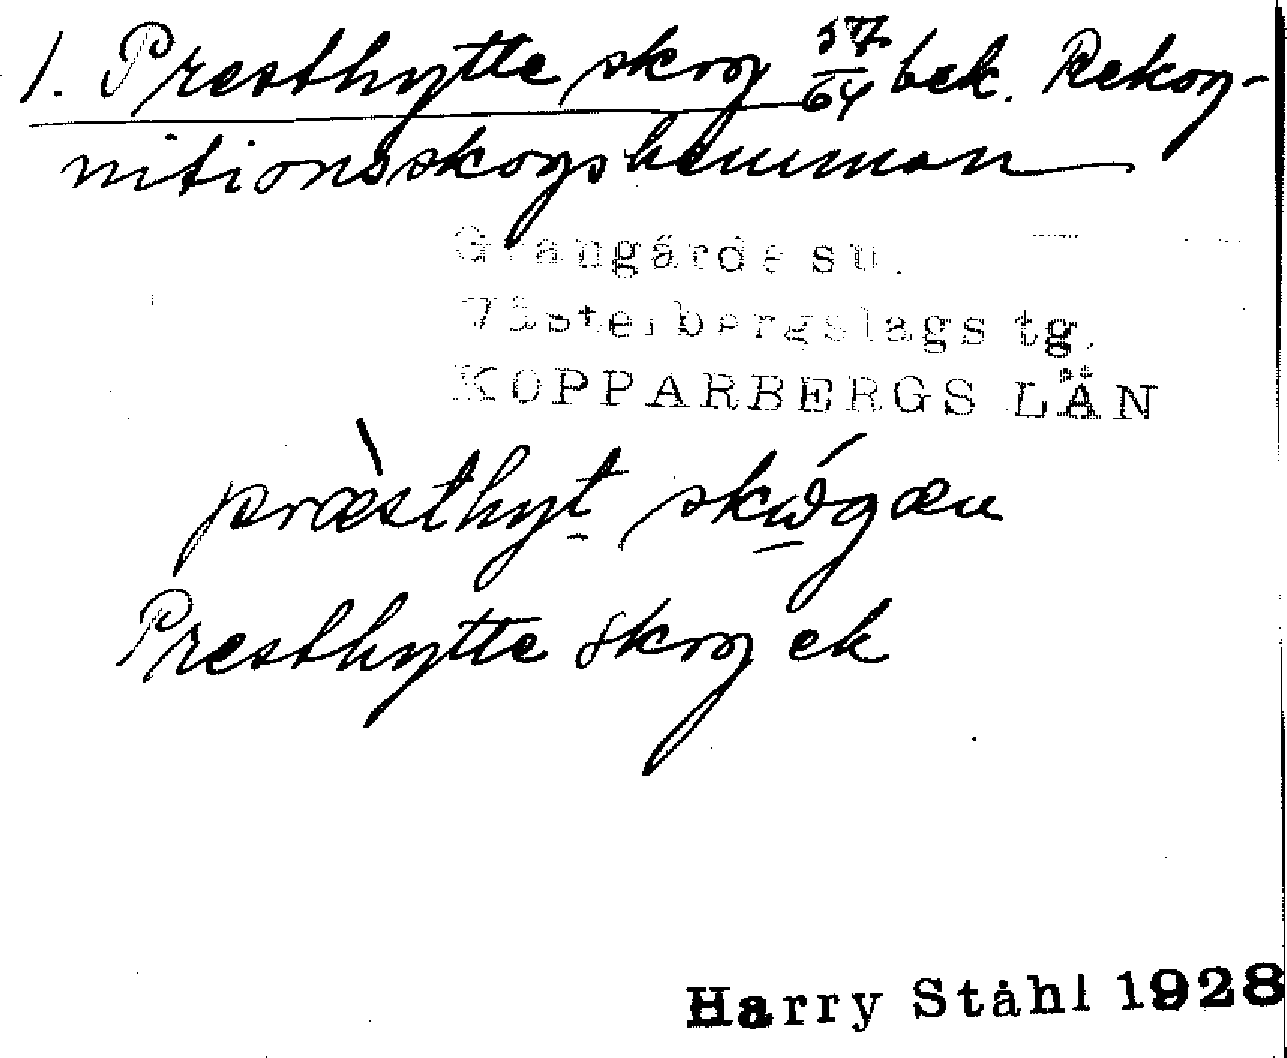 1. Presthytte skog 57/64 bek. Rekog-
nitionsskogshemman
Grangärde sn.
Västerbergslags tg.
KOPPARBERGS LÄN
præ̀sthyt skω̂́gæn
Presthytte skog ek
Harry Ståhl 1928